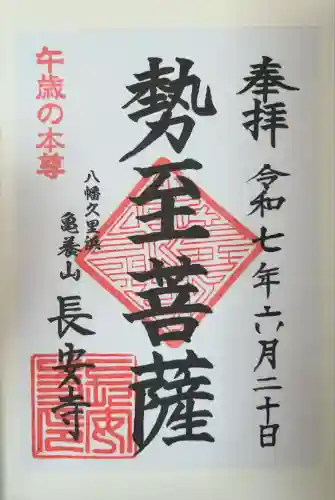 奉拝
令和七年六月二十日
勢至菩薩
午歳の本尊
八幡久里浜
亀養山
長安寺